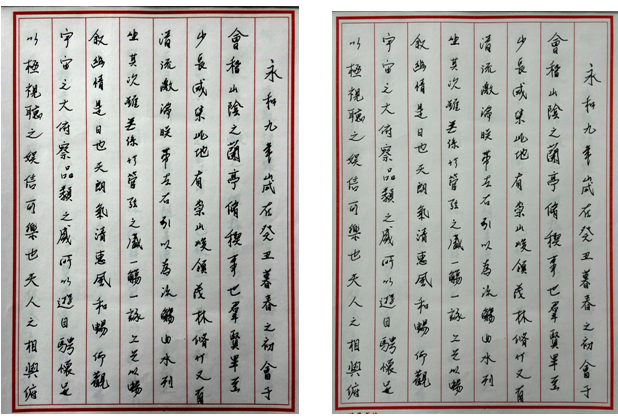 永和九年歲在癸丑暮春之初會于
會稽山陰之蘭亭脩稧事也羣賢畢至
少長咸集此地有崇山峻領茂林脩竹又有
清流激湍暎帶左右引以為流觴曲水列
坐其次雖無絲竹管弦之盛一觴一詠亦足以暢
敘幽情是日也天朗氣清惠風和暢仰觀
宇宙之大俯察品類之盛所以遊目騁懷足
以極視聽之娛信可樂也夫人之相與俯
永和九年歲在癸丑暮春之初會于
會稽山陰之蘭亭脩稧事也羣賢畢至
少長咸集此地有崇山峻領茂林脩竹又有
清流激湍暎帶左右引以為流觴曲水列
坐其次雖無絲竹管弦之盛一觴一詠亦足以暢
敘幽情是日也天朗氣清惠風和暢仰觀
宇宙之大俯察品類之盛所以遊目騁懷足
以極視聽之娛信可樂也夫人之相與俯